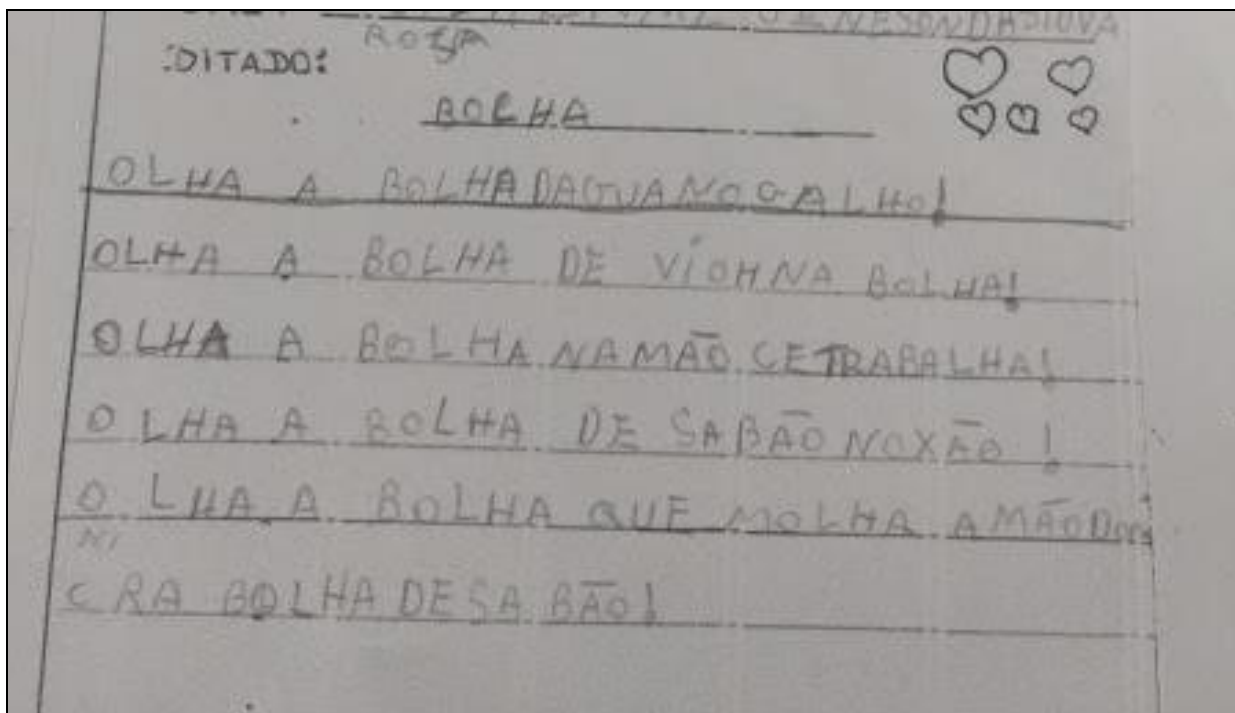 ROSA
DITADO:
BOLHA
OLHA A BOLHA DAGUA NO GALHO!
OLHA A BOLHA DE VIOHNA BOLHA!
OLHA A BOLHA NAMÃO CETRABALHA!
OLHA A BOLHA DE SABÃO NOXÃO!
OLHA A BOLHA QUE MOLHA AMÃO
NI
CRA BOLHA DESABÃO!